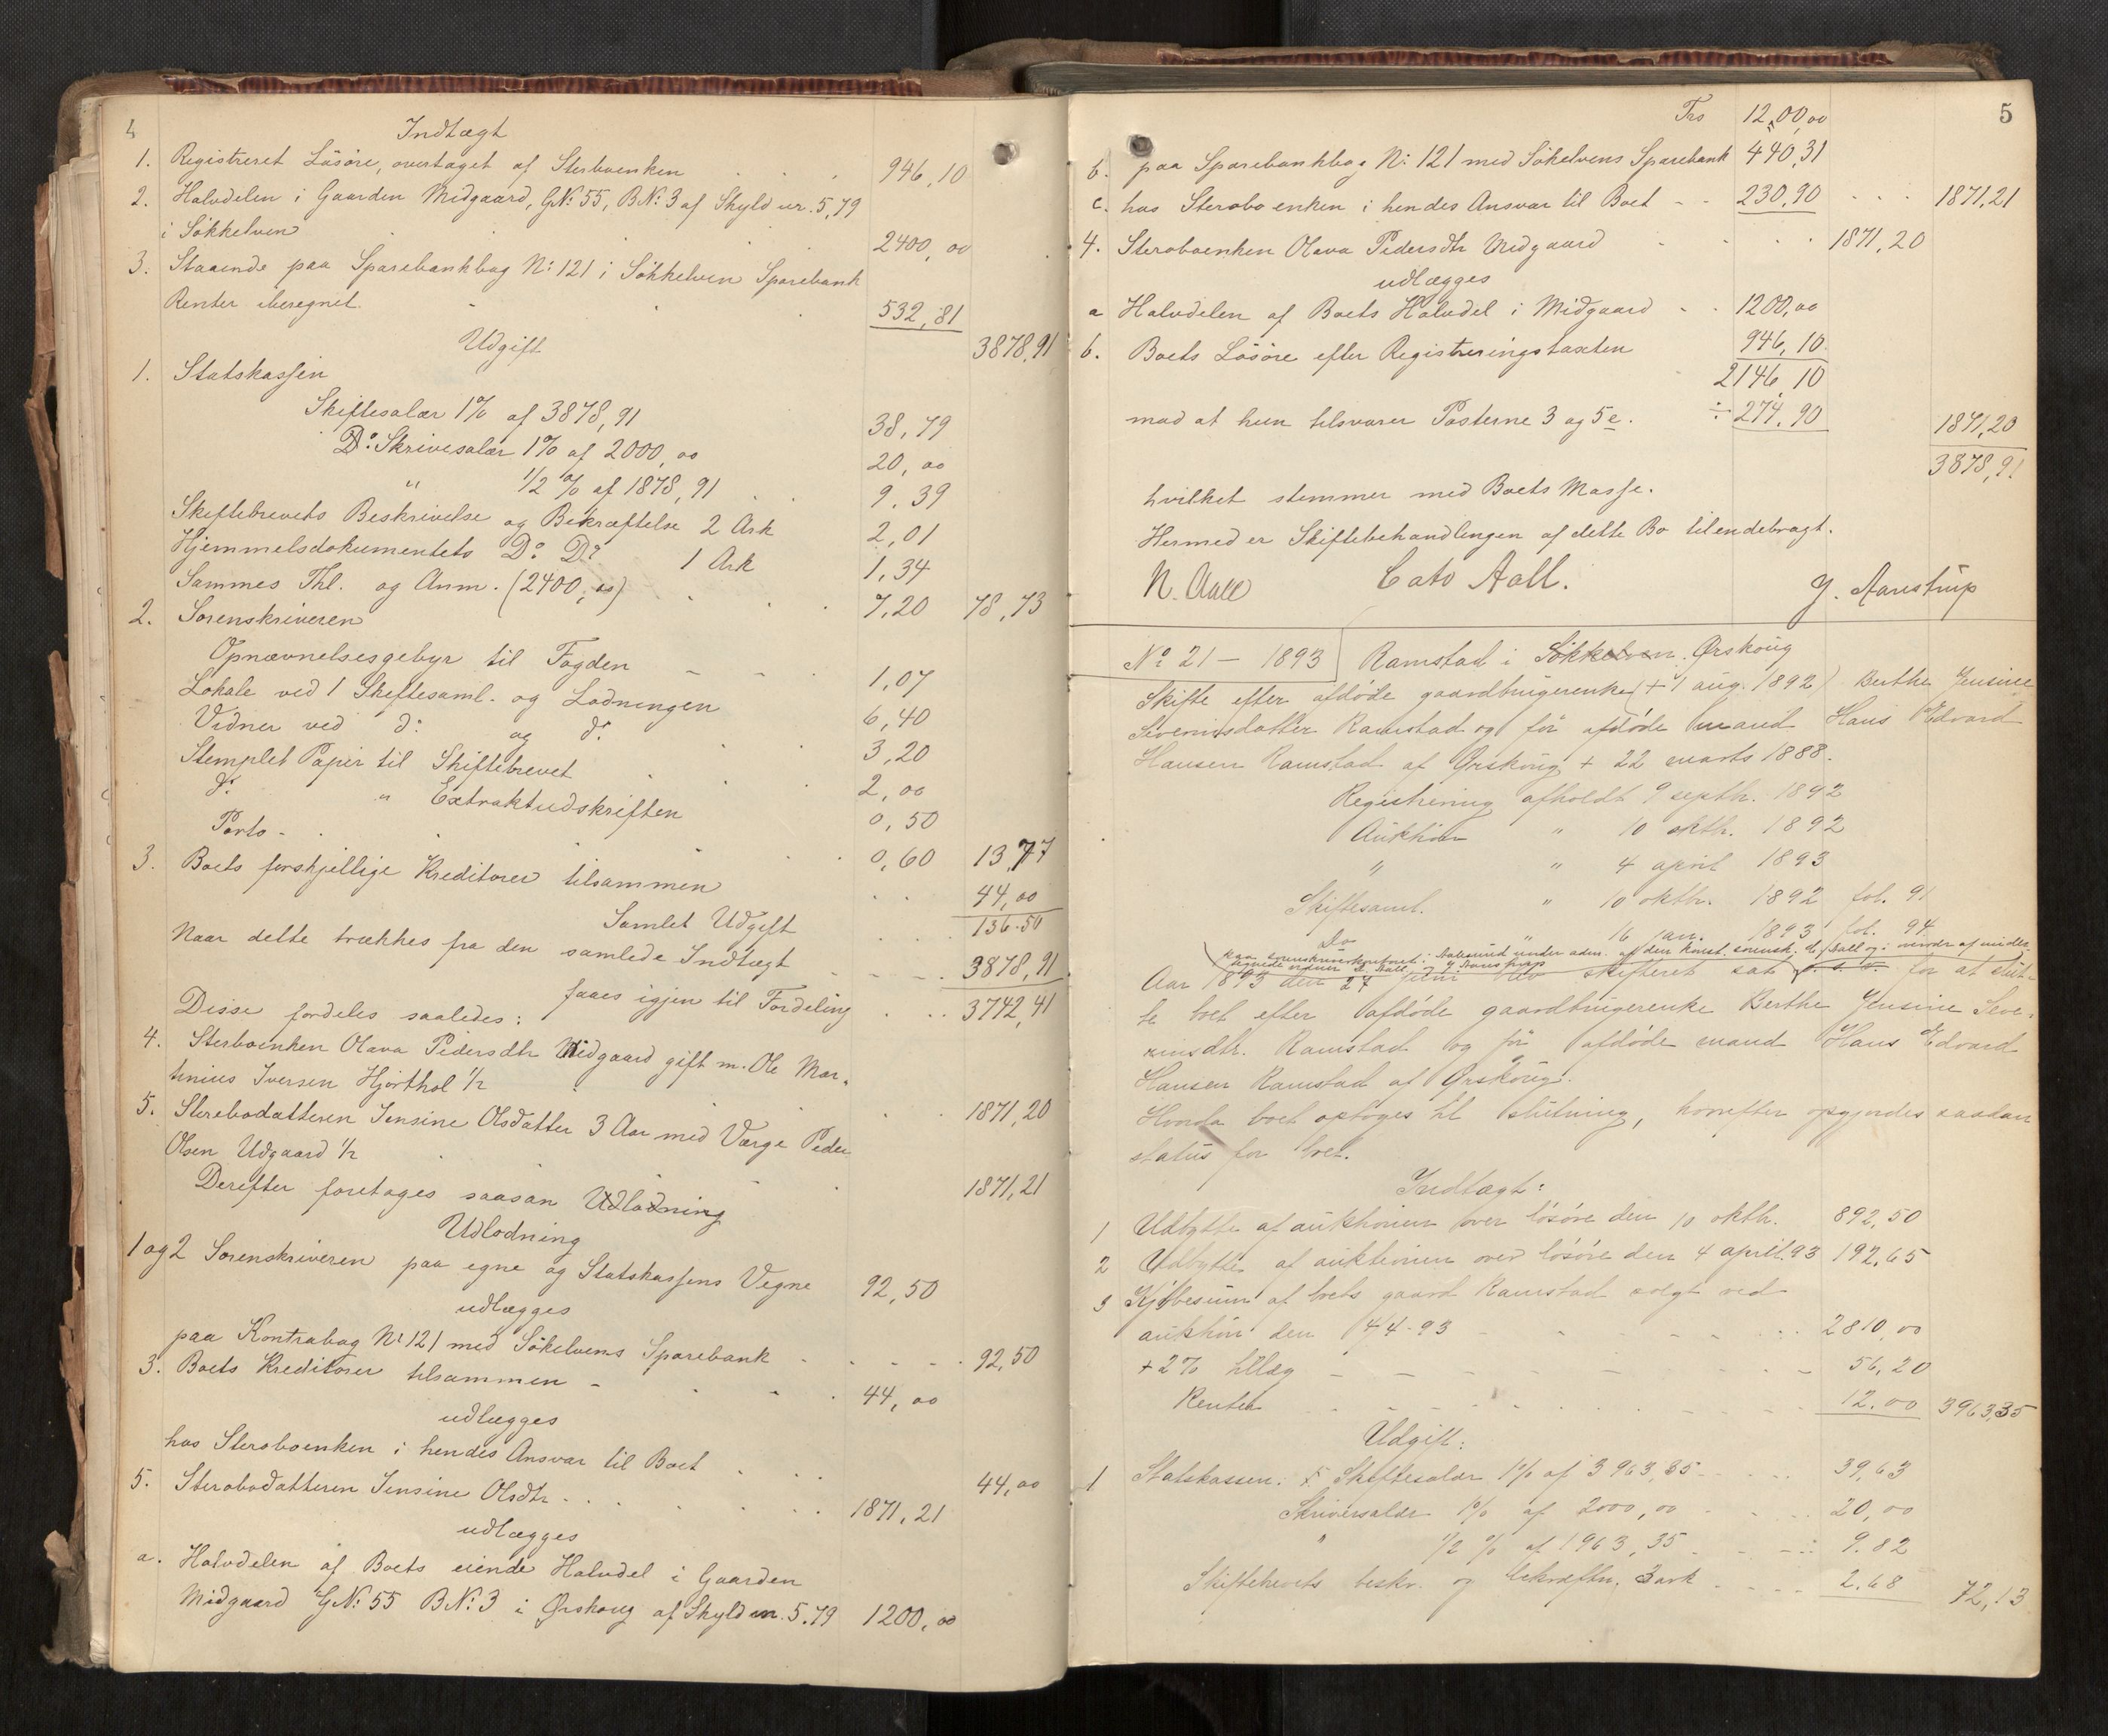 4
Indtægt
1. Registreret Lösöre, overtaget af Sterboenken . . . 946,10
2. Halvdelen i Gaarden Midgaard, GN: 55, BN: 3 af Skyld ur. 5,79
i Sökkelven . . . 2400,00
3. Staaende paa Sparebankbog N: 121 i Sökkelven Sparebank
Renter iberegnet. 532,81
3878,91
Udgift
1. Statskassen
Skiftesalær 1% af 3878,91 38,79
Do. Skrivesalær 1% af 2000,00 20,00
" 1/2 % af 1878,91 . . 9.39
Skiftebrevets Beskrivelse og Bekræftelse 2 Ark 2,01
Hjemmelsdokumentets Do Do 1 Ark 1,34
Sammes Thl. og Anm. (2400,00) . . . 7,20 78,73
2. Sorenskriveren
Opnævnelsesgebyr til Fogden - - 1,07
Lokale ved 1 Skiftesaml. og Lodningen 6,40
Vidner ved do og do 3,20
Stemplet Papir til Skiftebrevet . . . 2,00
do " Extraktudskriften 0,50
Porto - . . . 0,60 13,77
3. Boets forskjellige Kreditorer tilsammen . . 44,00
Samlet Udgift . . . 136.50
Naar dette trækkes fra den samlede Indtægt - - - - 3878,91
faaes igjen til Fordeling . . . 3742,41
Disse fordeles saaledes:
4. Sterboenken Olava Pedersdtr Midgaard gift m. Ole Mar-
tinius Iversen Hjorthol 1/2 . . . 1871,20
5. Sterbodatteren Jensine Olsdatter 3 Aar med Værge Peder
Olsen Udgaard 1/2 . . . 1871,21
Derefter foretages saasan Udlodning
Udlodning
1 og 2 Sorenskriveren paa egne og Statskassens Vegne 92,50
udlægges
paa Kontrabog No 121 med Sökelvens Sparebank - - - - 92,50
3. Boets Kreditorer tilsammen - . . . 44,00
udlægges
hos Sterboenken i hendes Ansvar til Boet . . . 44,00
5. Sterbodatteren Jensine Olsdtr . . . . 1871,21
udlægges
a. Halvdelen af Boets eiende Halvdel i Gaarden
Midgaard GN: 55 BN: 3 i Ørskoug af Skyld m. 5.79 1200,00
5
Trs 1200,00
b. paa Sparebankbog N: 121 med Sökelvens Sparebank 440,31
c. hos Sterboenken i hendes Ansvar til Boet - - 230,90 - - - 1871,21
4. Sterboenken Olava Pedersdtr Midgaard - - - 1871,20
udlægges
a Halvdelen af Boets Halvdel i Midgaard - - 1200,00
b. Boets Lösöre efter Registreringstaxten 946,10
2146,10
mod at hun tilsvarer Posterne 3 og 5c. ÷ 274,90 1871,20
3878,91
hvilket stemmer med Boets Masse.
Hermed er Skiftebehandlingen af dette Bo tilendebragt.
N. Aall Cato Aall. J. Aarestrup
No 21 - 1893 Ramstad i Sökkelven. Ørskoug
Skifte efter afdøde gaardbrugerenke (+ 1 aug. 1892) Berthe Jensine
Severinsdatter Ramstad og før afdøde mand Hans Edvard
Hansen Ramstad af Ørskoug + 22 marts 1888.
Registrering afholdt 9 septb. 1892
Auktion " 10 oktb. 1892
" " 4 april 1893
Skiftesaml. " 10 oktb. 1892 fol. 91
Do " 16 jan. 1893 fol. 94
paa sorenskriverkontoret i Aalesund under adm. af den konst. sorensk. C. Aall og i nærvær af under-
tegnede vidner N. Aall og J. Aarestrup
Aar 1893 den 27 juni blev skifteret sat for at slut-
te boet efter afdøde gaardbrugerenke Berthe Jensine Seve-
rinsdtr. Ramstad og før afdøde mand Hans Edvard
Hansen Ramstad af Ørskoug.
Hvorda boet optoges til slutning, hvorefter opgjordes saadan
status for boet.
Indtægt:
1 Udbytte af auktionen over lösöre den 10 oktb. 892,50
2 Udbytte af auktionen over lösöre den 4 april 93 192,65
3 Kjöbesum af boets gaard Ramstad solgt ved
auktion den 4/4-93 - - - - 2810,00
+ 2% tillæg - - - - 56,20
Renter - - - - 12.00 3963,35
Udgift:
1 Statskassen. Skiftesalær 1% af 3963,35 - - - 39,63
Skriversalær 1% af 2000,00 - - - 20,00
" 1/2 % af 1963,35 - - - 9.82
Skiftebrevets beskr. og bekræftn. 3 ark - - - 2.68 72,13